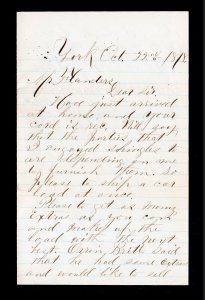 York Oct. 22d 1878
Mr Flanders
Dear Sir,
Have just arrived
at home, and your
card is rec. Will say,
that the parties, that
I engaged shingles to
are depending on me
to furnish them. so
please to ship a car
load at once.
Please to get as many
Extras as you can
and make up the
load with the next
best. Orrin Britt said
that he had some Extras
and would like to sell